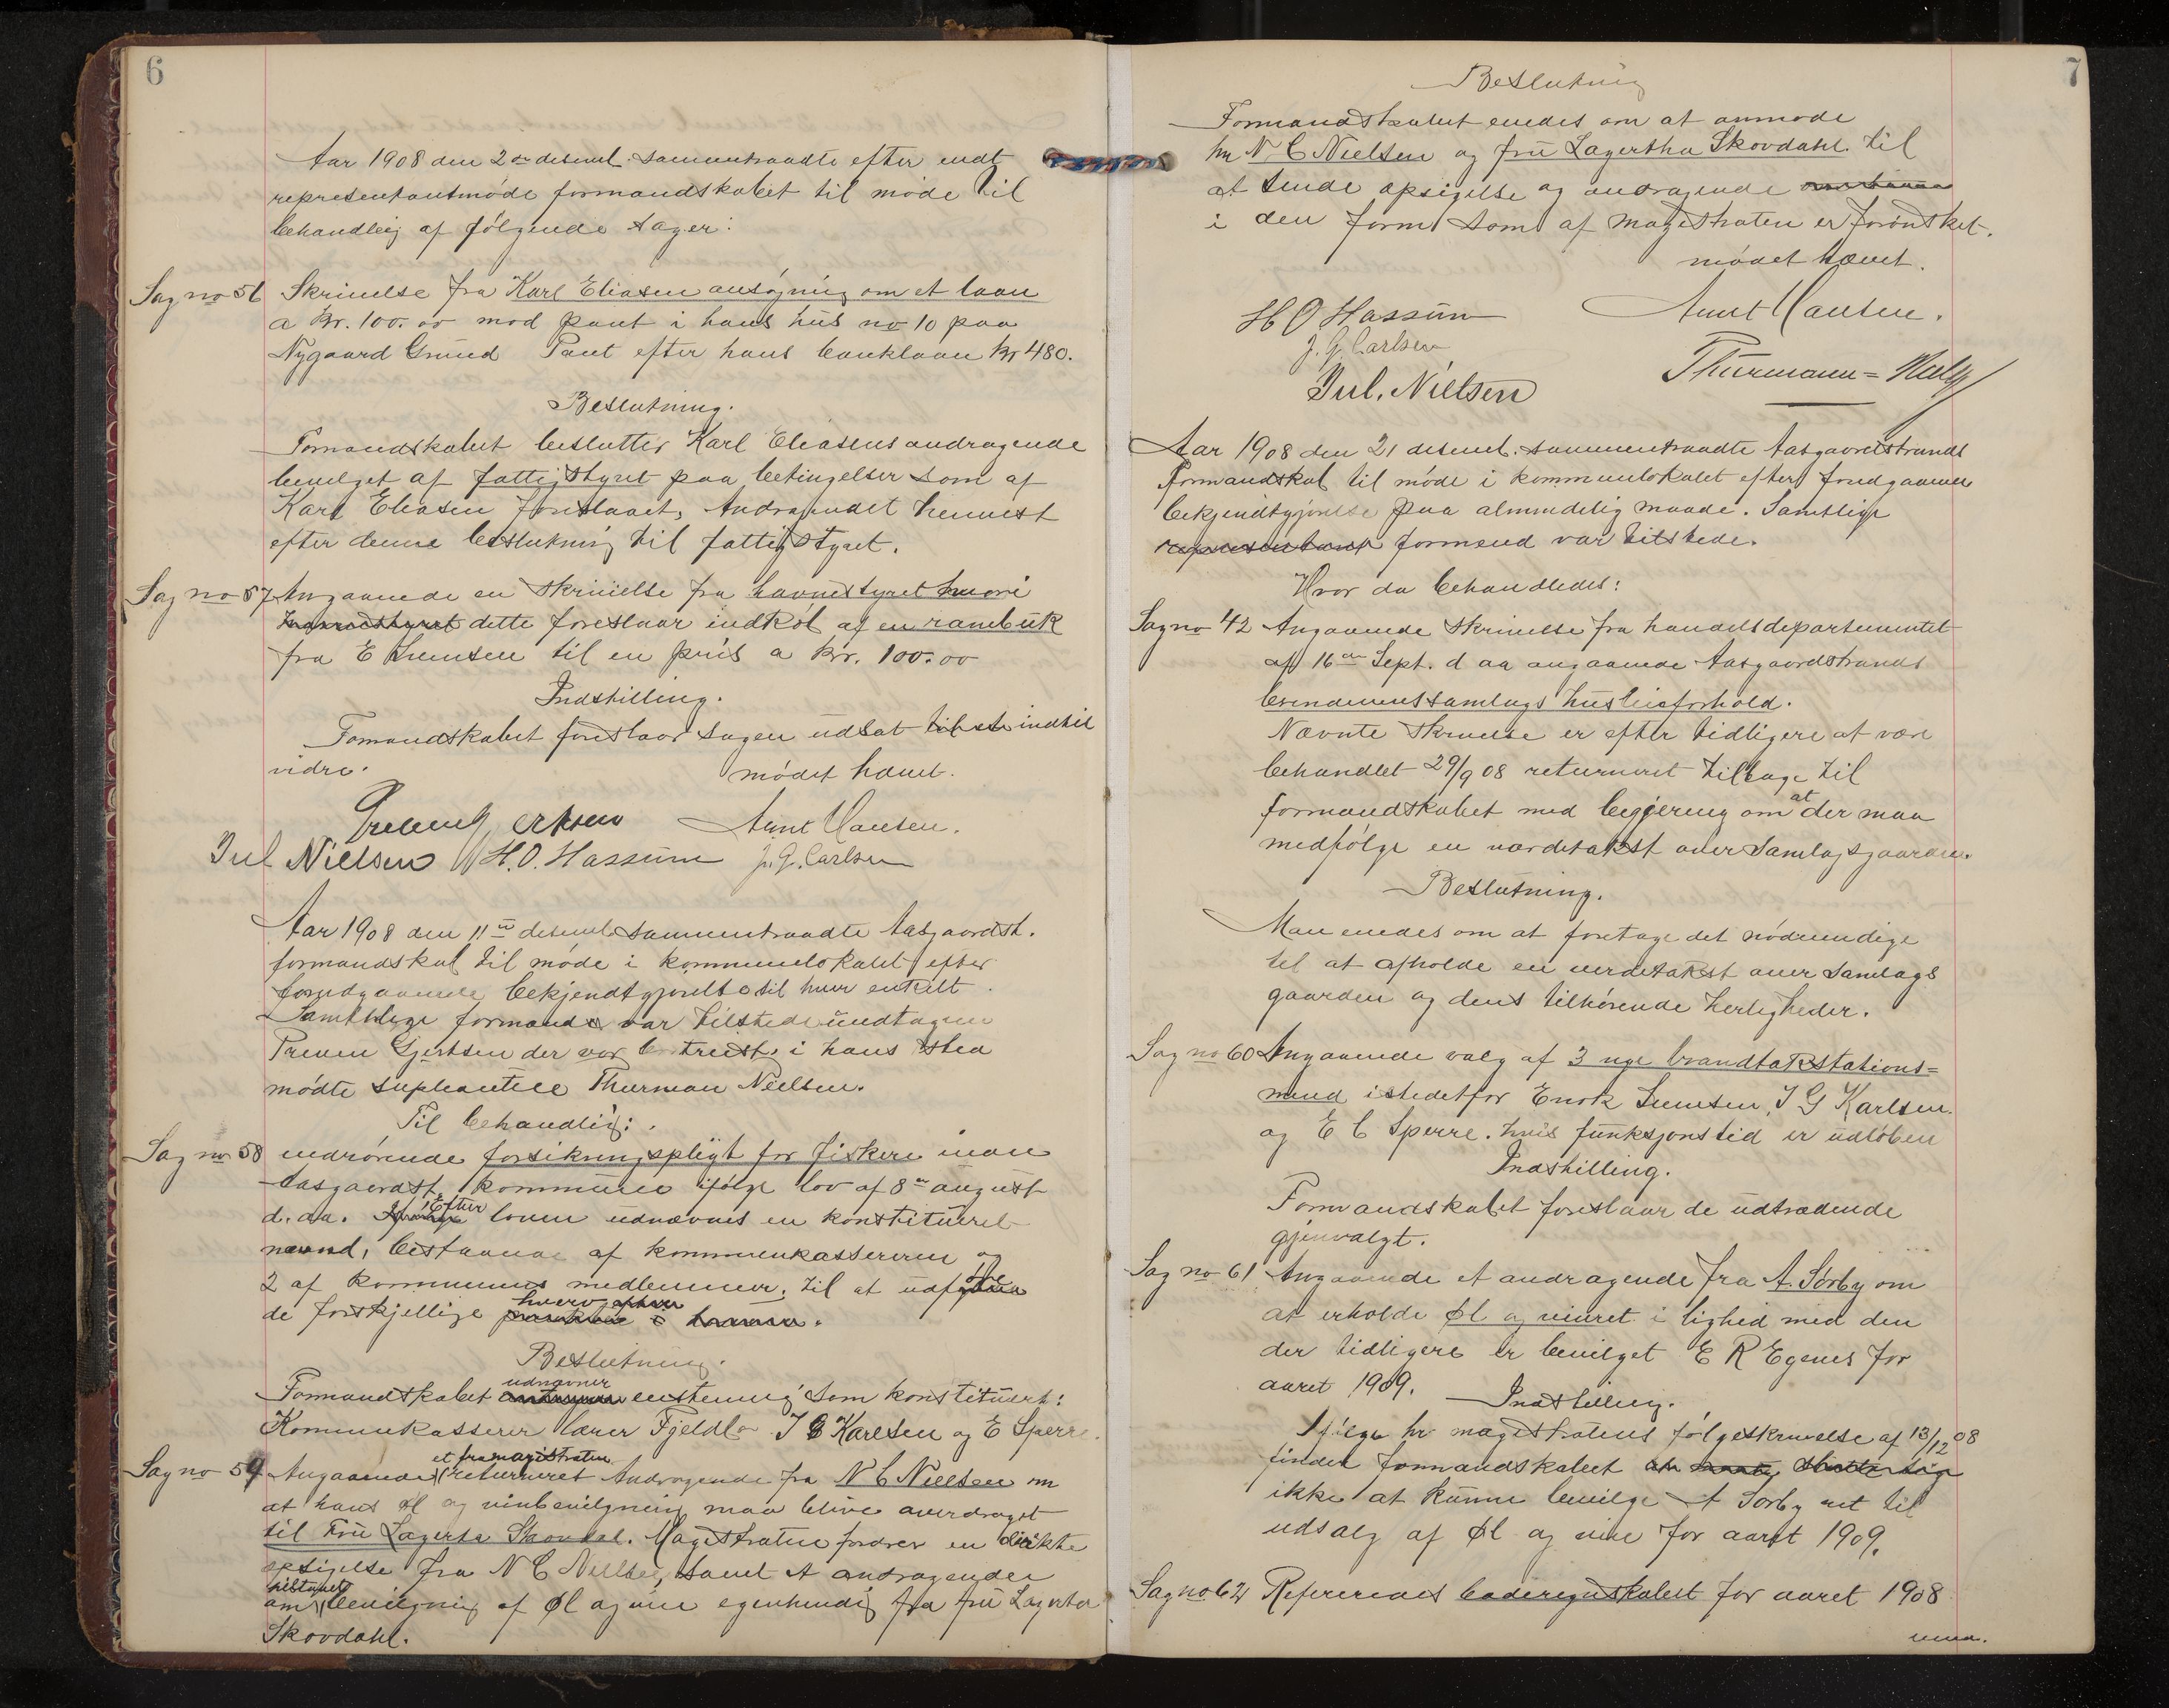 6
Aar 1908 den 2den desemb. sammentraadte efter endt
representantmøde formandskabet til møde til
behandling af følgende sager:
Sag no 56 Skrivelse fra Karl Eliasen ansøgning om et laan
a Kr. 100.00 mod pant i hans hus no 10 paa
Nygaard Grund Pant efter hans banklaan Kr 480.
Beslutning.
Formandskabet beslutter Karl Eliasens andragende
bevilget af fattigstyret paa betingelser som af
Karl Eliasen foreslaaet, Andragendet henvist
efter denne beslutning til fattigstyret.
Sag no 57 Angaaende en skrivelse fra havnestyret hvori
havnestyret dette foreslaar indkøb af en rambuk
fra E Svensen til en pris a kr. 100.00
Indstilling.
Formandskabet foreslaar sagen udsat indtil
vidre. mødet hævet.
Preben Gjertsen Arnt Hansen.
Jul Nielsen H. O. Hassum J. G. Carlsen
Aar 1908 den 11te desemb sammentraadte Aasgaardst.
formandskab til møde i kommunelokalet efter
foregaaende bekjendtgjørelse til hver enkelt.
Samtlige formænd var tilstede undtagen
Preven Gjertsen der var bortreist, i hans sted
mødte supleantee Thurman Nielsen.
Til behandling:
Sag no 58 vedrørende forsikringspligt for fiskere inden
Aasgaardst. kommune ifølge lov af 8de august
d. aa. Efter loven udnævnes en konstitueret
nævnd, bestaaende af kommunekassereren og
2 af kommunens medlemmer, til at udføre
de forskjellige hverv
Beslutning.
Formandskabet udnævner enstemig som konstituert:
Kommunekasserer lærer Fjeldbo J G Karlsen og E Sperre.
Sag no 59 Angaaende et fra magistraten returneret Andragende fra N C Nielsen om
at hans øl og vinbevilgning maa blive overdraget
til Fru Lagerta Skovdal. Magistraten fordrer en direkte
opsigelse fra N C Nielsen, samt et andragende
om tilstaaet bevilgning af Øl og vin egenhendig fra fru Lagerta
Skovdahl.
7
Beslutning
Formandskabet enedes om at anmode
hr N. C Nielsen og fru Lagertha Skovdahl til
at sende opsigelse og andragende
i den form som af magistraten er forønsket.
mødet hævet.
H O Hassum Arnt Hansen.
J. G. Carlsen
Jul. Nielsen Thurmann=Niels
Aar 1908 den 21 desemb. sammentraadte Aasgaardstrands
Formandskab til møde i kommunelokalet efter foregaaende
bekjendtgjørelse paa almindelig maade. Samtlige
representant formænd var tilstede.
Hvor da behandledes:
Sag no 42 Angaaende skrivelse fra handelsdepartementet
af 16de Sept. d aa angaaende Aasgaardstrands
brendevinssamlags husleieforhold.
Nævnte skrivelse er efter tidligere at være
behandlet 29/9 08 returneret tilbage til
formandskabet med begjering om at der maa
medfølge en værdetakst over samlagsgaarden.
Beslutning.
Man enedes om at foretage det nødvendige
til at afholde en verdetakst over samlags
gaarden og dens tilhørende herligheder.
Sag no 60 Angaaende valg af 3 nye brandtakstations=
mend istedetfor Enok Svensen, J G Karlsen.
og E C Sperre. hvis funksjonstid er udløben
Indstilling.
Formandskabet foreslaar de udtrædende
gjenvalgt.
Sag no 61 Angaaende et andragende fra A. Sørby om
at erholde øl og vinret i lighed med den
der tidligere er bevilget E R Egenes for
aaret 1909. Indstilling.
Ifølge hr magistratens følgeskrivelse af 13/12 08
finder formandskabet
ikke at kunne bevilge A Sørby ret til
udsalg af Øl og vin for aaret 1909.
Sag no 62 Refereredes baderegnskabet for aaret 1908